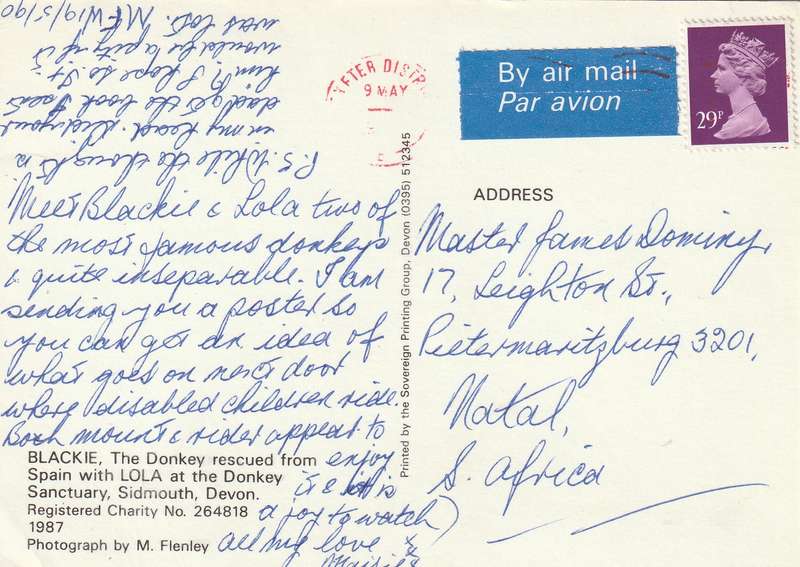 Meet Blackie & Lola two of
the most famous donkeys
& quite inseparable. I am
sending you a poster so
you can get an idea of
what goes on next door
where disabled children ride.
Both mount & rider appear to
enjoy
it & it is
a joy to watch)
All my love
Maisie
P.S. While the thought is
in my head. Did your
dad get the book I sent
him? I hope so. It
would be a pity if it
was lost. MFW 19/5/90
BLACKIE, The Donkey rescued from
Spain with LOLA at the Donkey
Sanctuary, Sidmouth, Devon.
Registered Charity No. 264818
1987
Photograph by M. Flenley
Printed by the Sovereign Printing Group, Devon (0395) 512345
EXETER DISTR
9 MAY
By air mail
Par avion
29P
ADDRESS
Master James Dominy,
17, Leighton St.,
Pietermaritzburg 3201,
Natal,
S. Africa